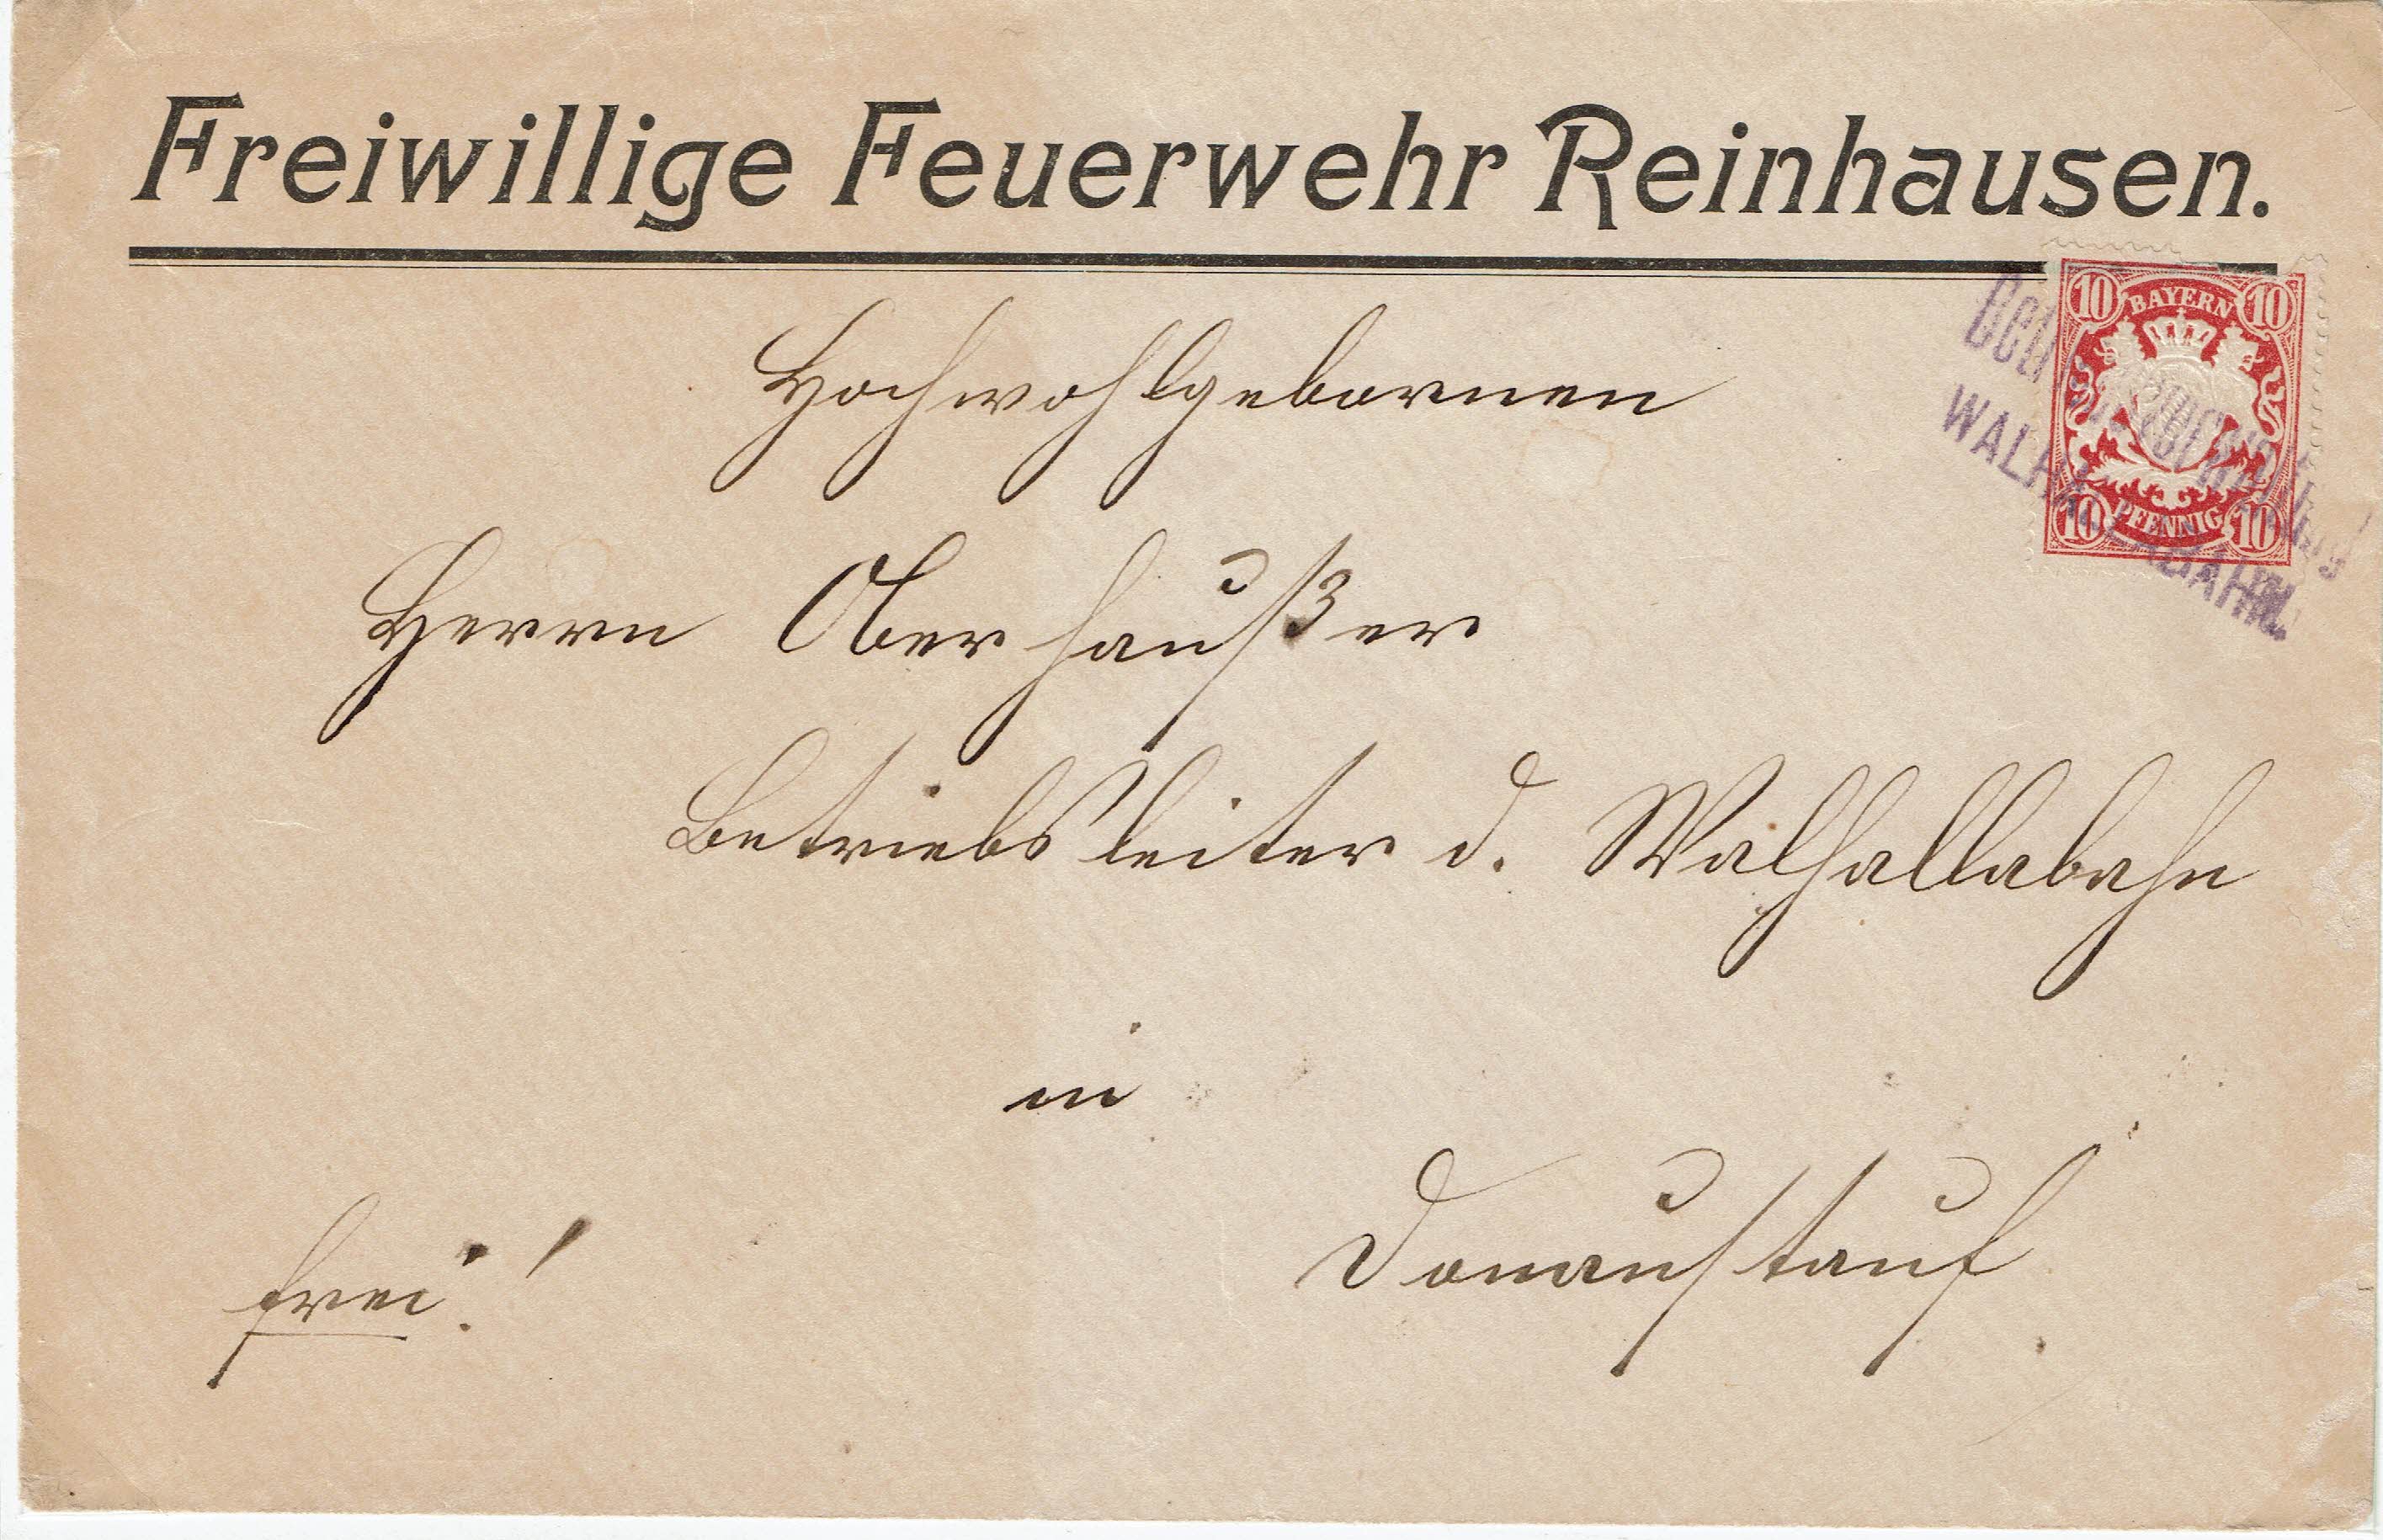 Freiwillige Feuerwehr Reinhausen.
10 BAYERN 10
10 PFENNIG 10
WALHALLABAHN.
Hochwohlgebornen
Herrn Oberhaußer
Betriebsleiter d. Walhallabahn
in
Donaustauf
frei!